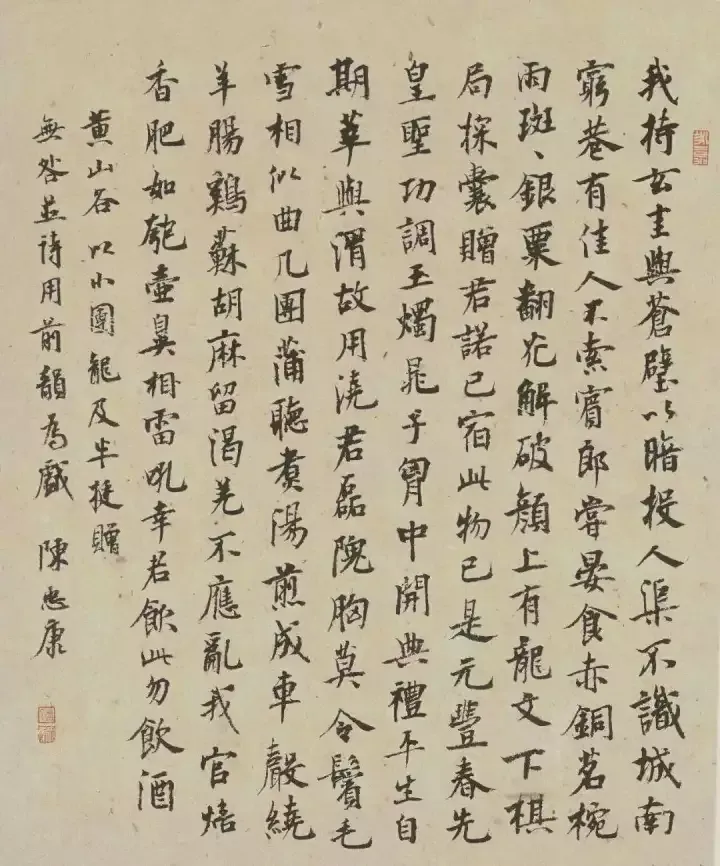 我持玄圭與蒼璧以暗投人渠不識城南
窮巷有佳人不索賓郎嘗晏食赤銅茗椀
雨斑、銀粟翻花解破顏上有龍文下棋
局探囊贈君諾已宿此物已是元豐春先
皇聖功調玉燭晁子胷中開典禮平生自
期莘與渭故用澆君磊隗胸莫令鬢毛
雪相似曲几團蒲聽煮湯煎成車聲繞
羊腸鷄蘇胡麻留渴羌不應亂我官焙
香肥如瓠壺鼻相雷吼幸君飲此勿飲酒
黄山谷以小團龍及半挺贈
無咎並詩用前韻為戲 陳忠康